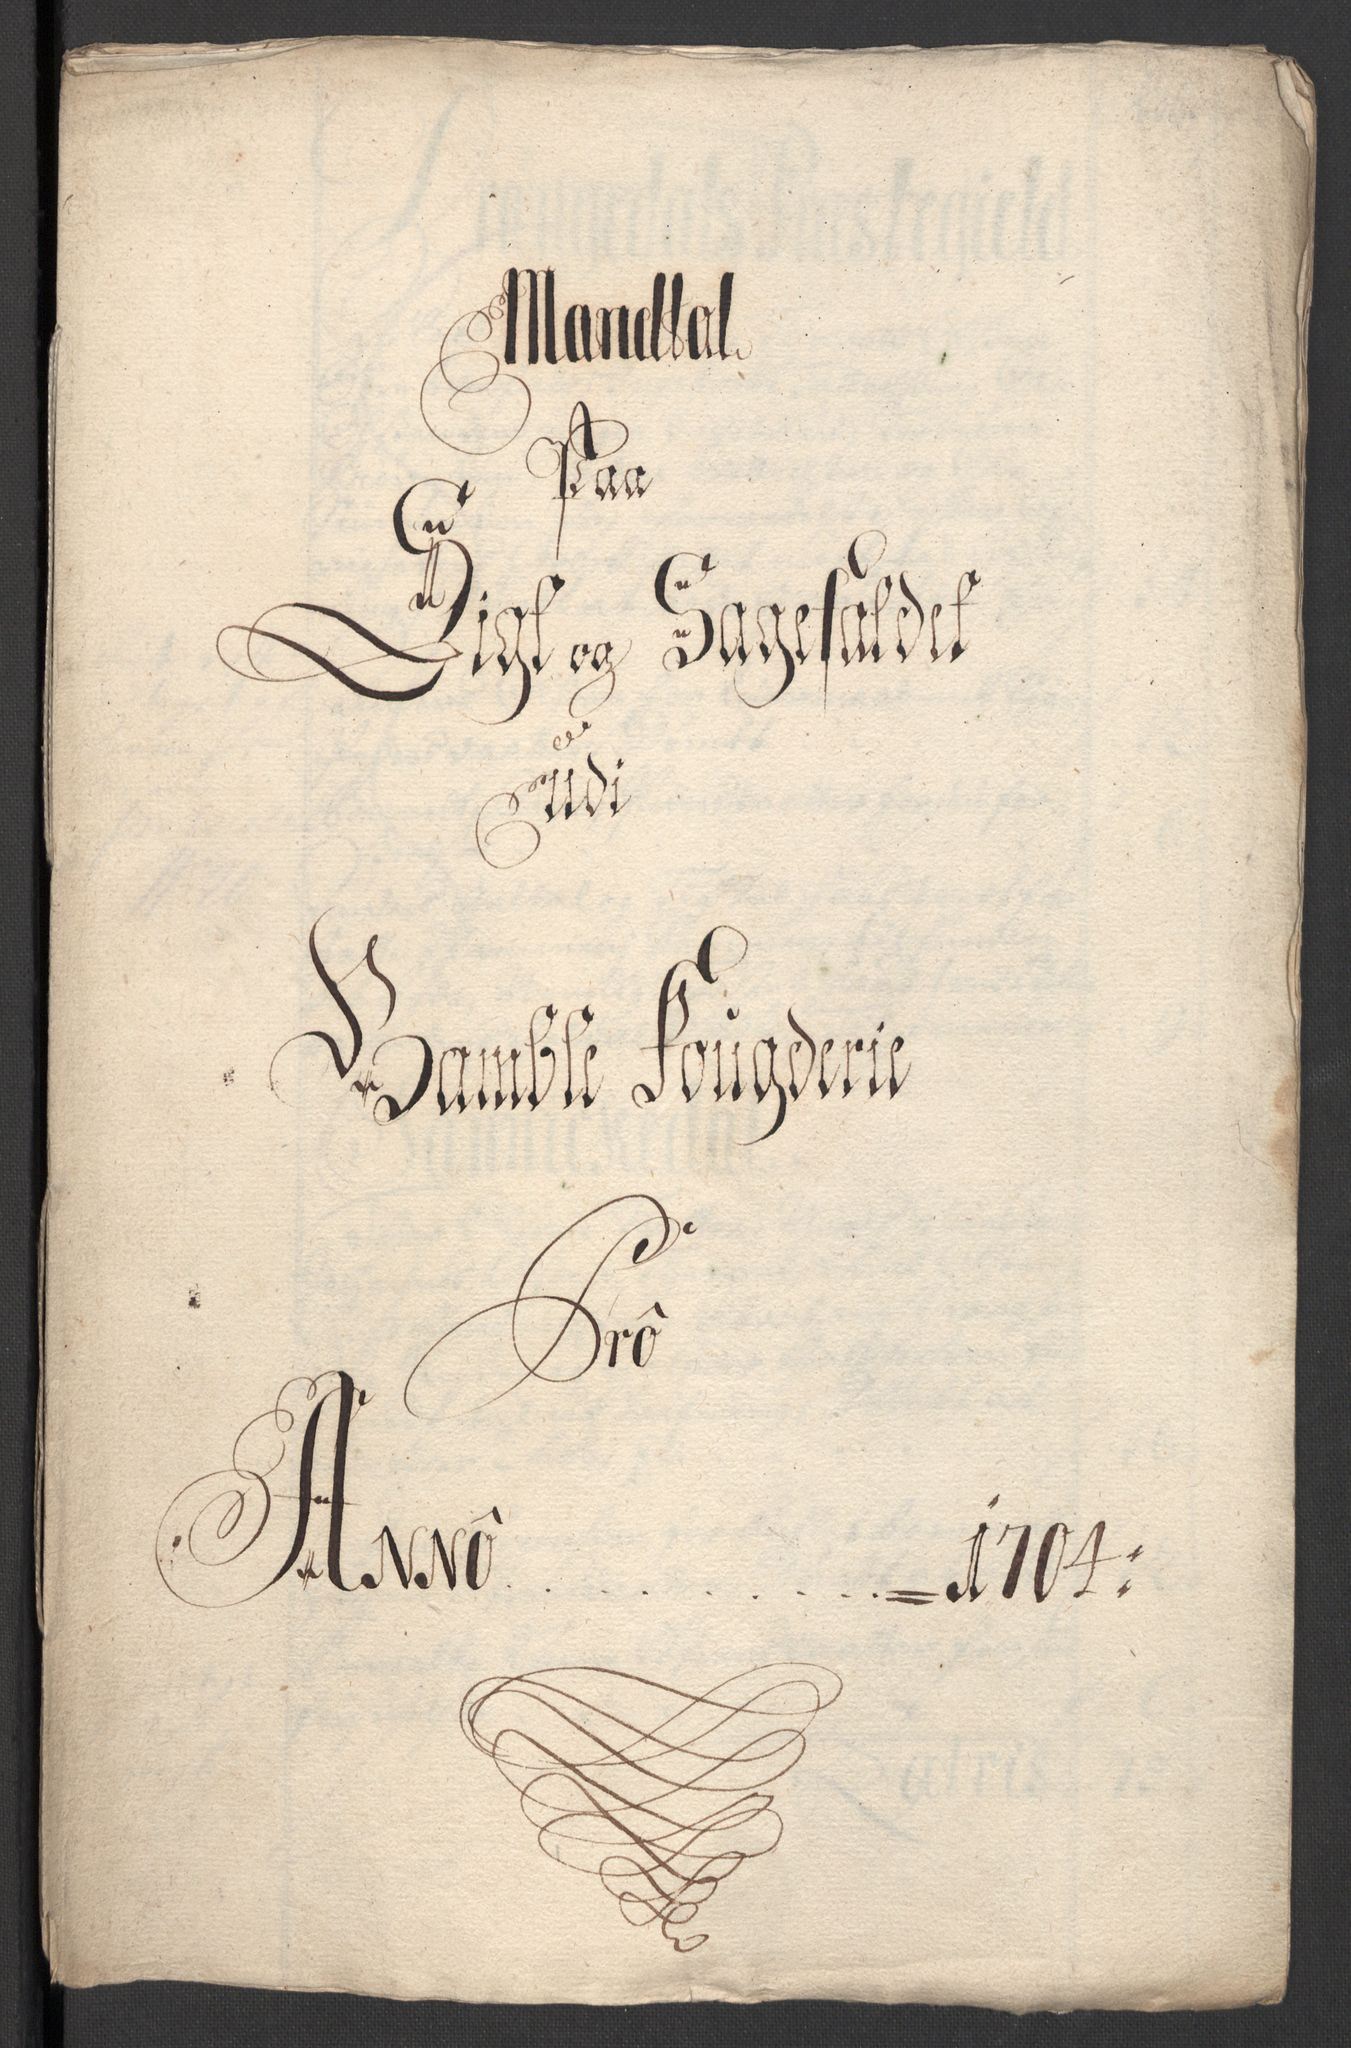 Mandtal.
Paa
Sigt og Sagefaldet
Udi
Bamble Fougderie
Prô
Annô . . . . . . . . . = 1704: